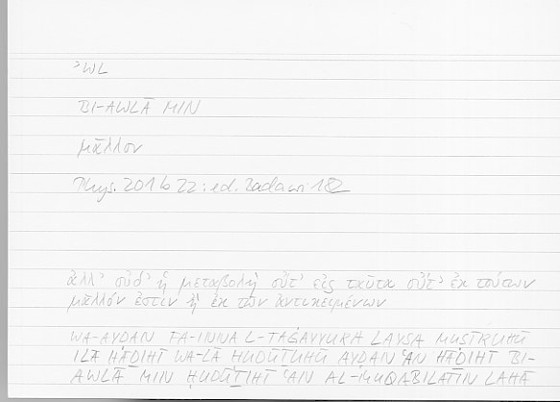 ʾWL
BI-AWLĀ MIN
μᾶλλον
Phys. 201b22: ed. Badawi 182
ἀλλ' οὐδ' ἡ μεταβολὴ οὔτ' εἰς ταῦτα οὔτ' ἐκ τούτων
μᾶλλόν ἐστιν ἢ ἐκ τῶν ἀντικειμένων
WA-AYḌAN FA-INNA L-TAĠAYYURA LAYSA
ILĀ HĀḎIHĪ WA-LĀ ḤUDŪṮUHŪ AYḌAN ʿAN HĀḎIHĪ BI-
AWLĀ MIN ḤUDŪṮIHĪ ʿAN AL-MUQĀBILATI LAHĀ